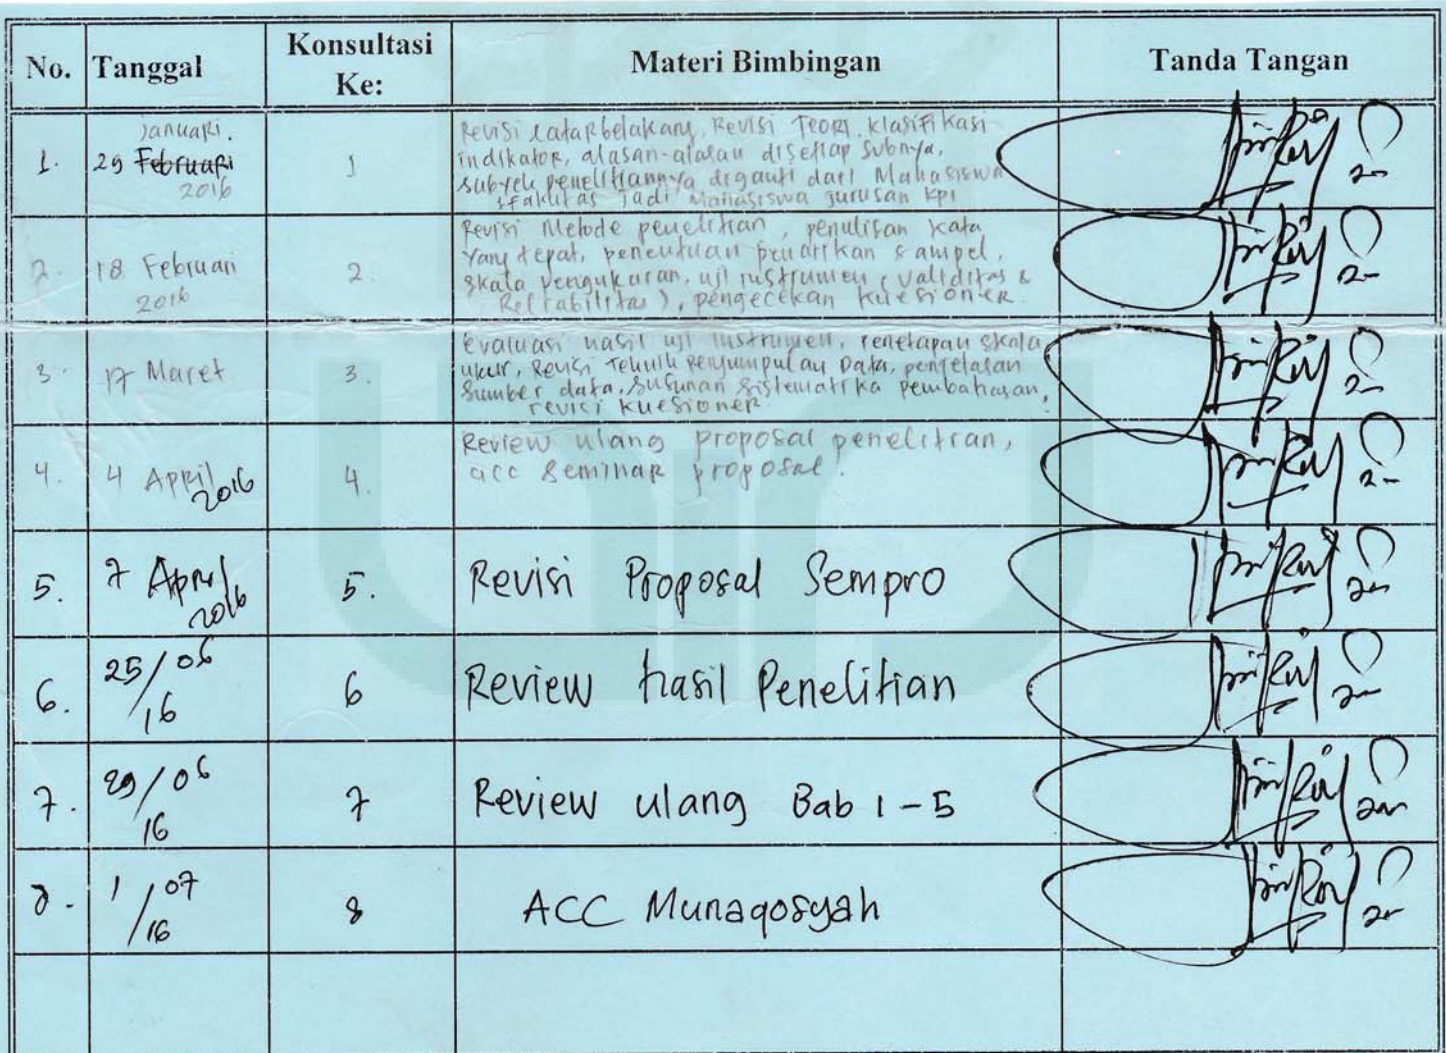 No. Tanggal Konsultasi Ke: Materi Bimbingan Tanda Tangan
Januari.
1. 29 Februari 1
2016
Revisi Latar belakang, Revisi Teori, klasifikasi
indikator, alasan-alasan disetiap Subnya,
Subyek penelitiannya diganti dari Mahasiswa
sfakultas jadi Mahasiswa jurusan KPI
2. 18 Februari 2.
2016
Revisi Metode penelitian, penulisan kata
yang tepat, penentuan penarikan sampel,
skala pengukuran, uji instrumen (validitas &
Reliabilitas), pengecekan kuesioner.
3. 17 Maret 3.
Evaluasi hasil uji instrumen, penetapan skala
ukur, Revisi Tehnik Pengumpulan Data, penjelasan
Sumber data, Susunan Sistematika pembahasan,
revisi kuesioner.
4. 4 April 4.
2016
Review ulang proposal penelitian,
acc Seminar proposal.
5. 7 April 5. Revisi Proposal Sempro
2016
6. 25/06 6 Review hasil Penelitian
/16
7. 29/06 7 Review ulang Bab 1-5
/16
8. 1/07 8 ACC Munaqosyah
/16